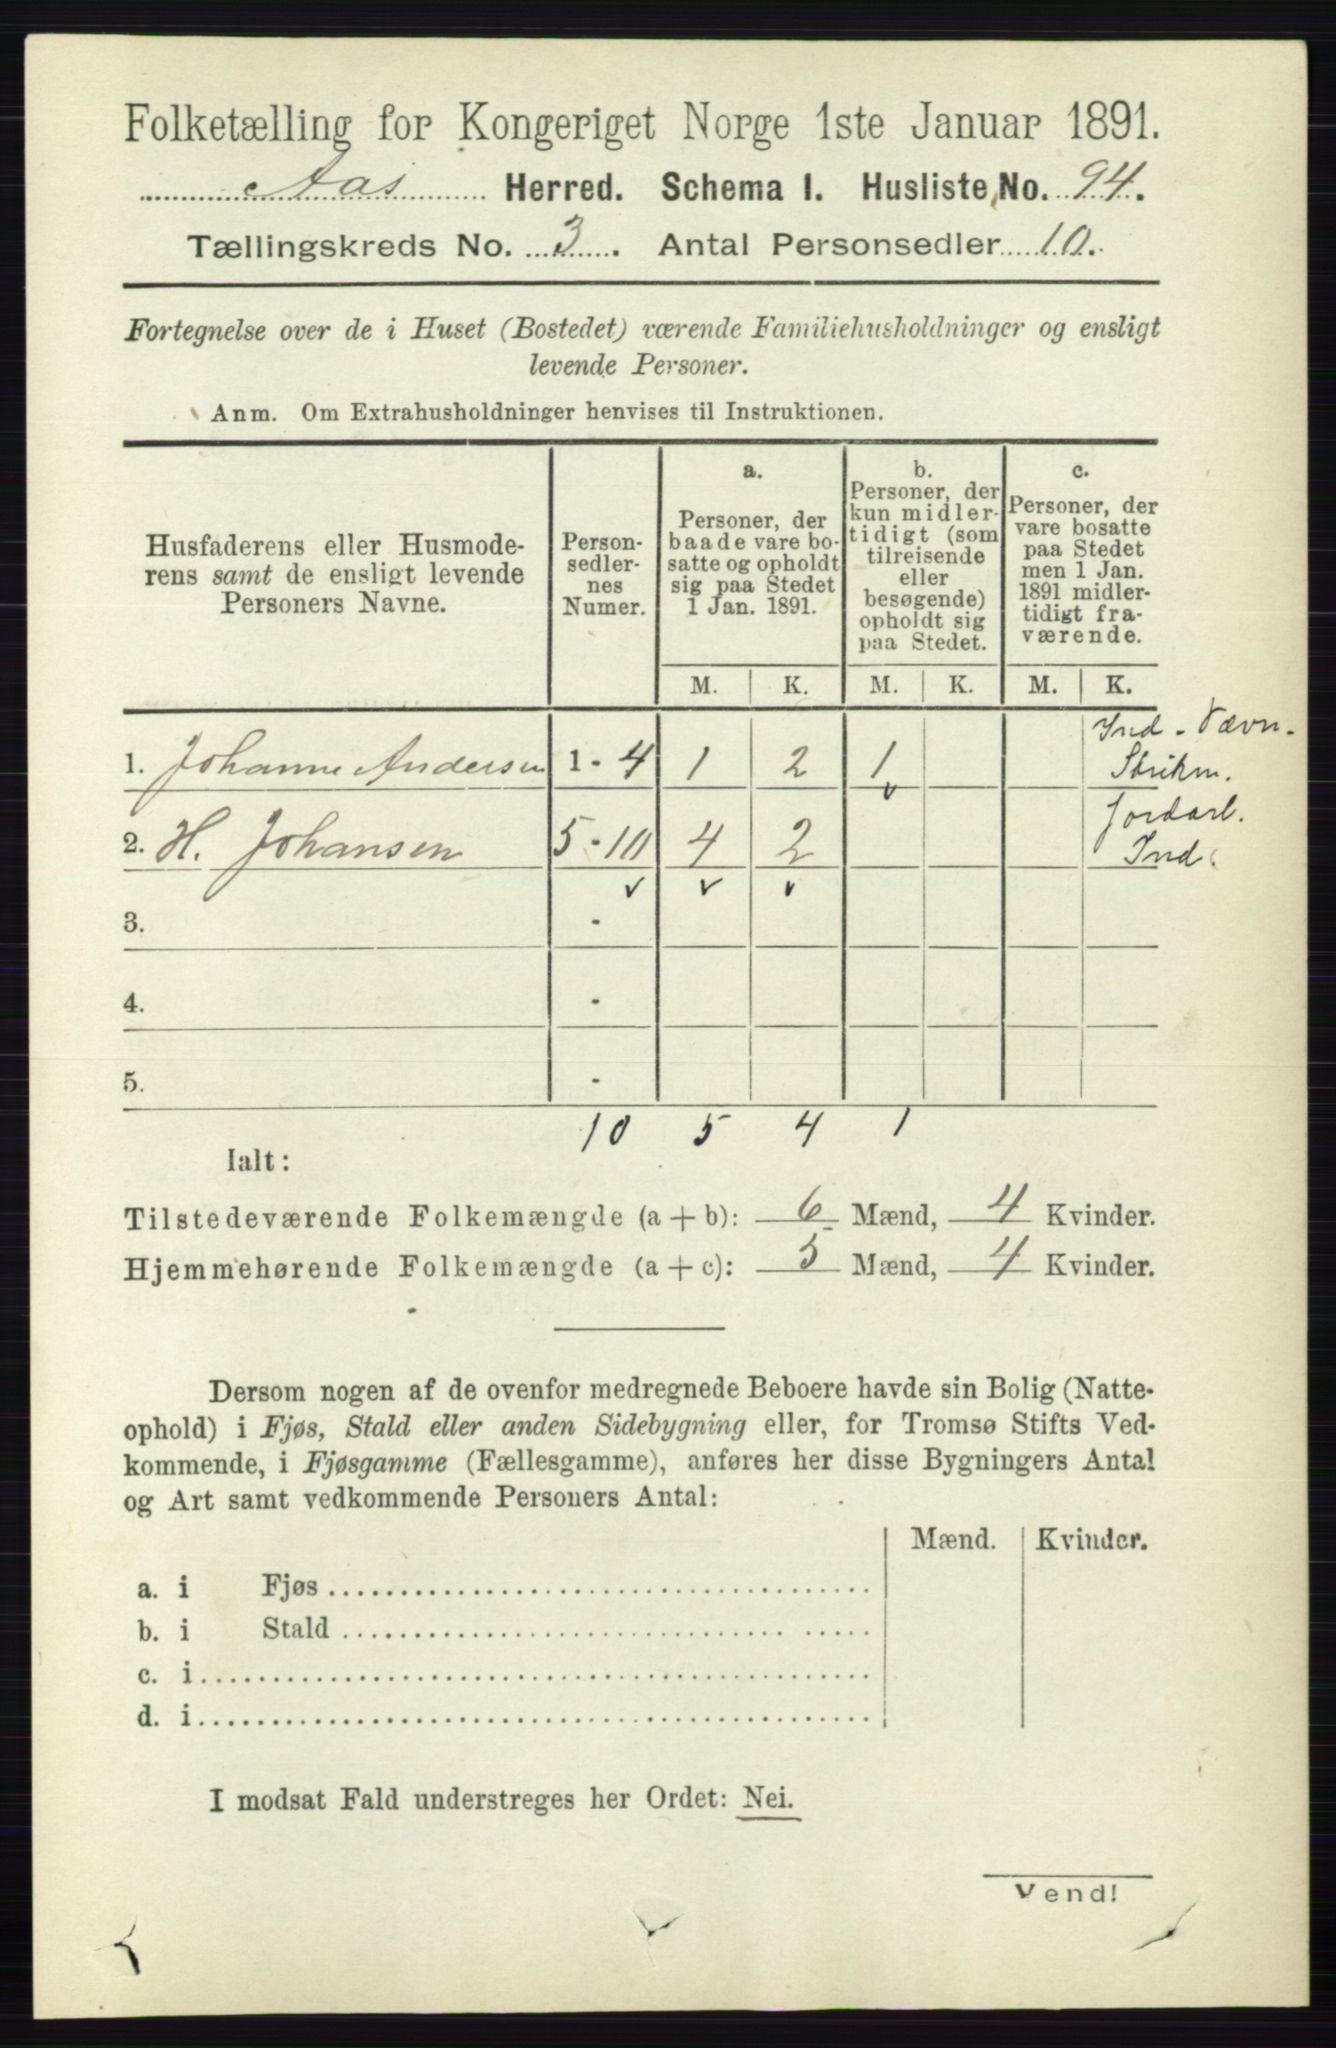 Folketælling for Kongeriget Norge 1ste Januar 1891.
Aas Herred. Schema 1. Husliste No. 94.
Tællingskreds No. 3. Antal Personsedler 10.
Fortegnelse over de i Huset (Bostedet) værende Familiehusholdninger og ensligt
levende Personer.
Anm. Om Extrahusholdninger henvises til Instruktionen.
Husfaderens eller Husmode-
rens samt de ensligt levende
Personers Navne.
Person-
sedler-
nes
Numer.
a.
Personer, der
baade vare bo-
satte og opholdt
sig paa Stedet
1 Jan. 1891.
b.
Personer, der
kun midler-
tidigt (som
tilreisende
eller
besøgende)
opholdt sig
paa Stedet.
c.
Personer, der
vare bosatte
paa Stedet
men 1 Jan.
1891 midler-
tidigt fra-
værende.
M. K. M. K. M. K.
Ind - Vævn -
1. Johanne Andersen 1 - 4 1 2 1 Strikn.
Jordarb.
2. H. Johansen 5 - 10 4 2 Ind
3. -
4. -
5. -
10 5 4 1
Ialt:
Tilstedeværende Folkemængde (a + b): 6 Mænd, 4 Kvinder.
Hjemmehørende Folkemængde (a + c): 5 Mænd, 4 Kvinder.
Dersom nogen af de ovenfor medregnede Beboere havde sin Bolig (Natte-
ophold) i Fjøs, Stald eller anden Sidebygning eller, for Tromsø Stifts Ved-
kommende, i Fjøsgamme (Fællesgamme), anføres her disse Bygningers Antal
og Art samt vedkommende Personers Antal:
Mænd. Kvinder.
a. i Fjøs
b. i Stald
c. i
d. i
I modsat Fald understreges her Ordet: Nei.
Vend!